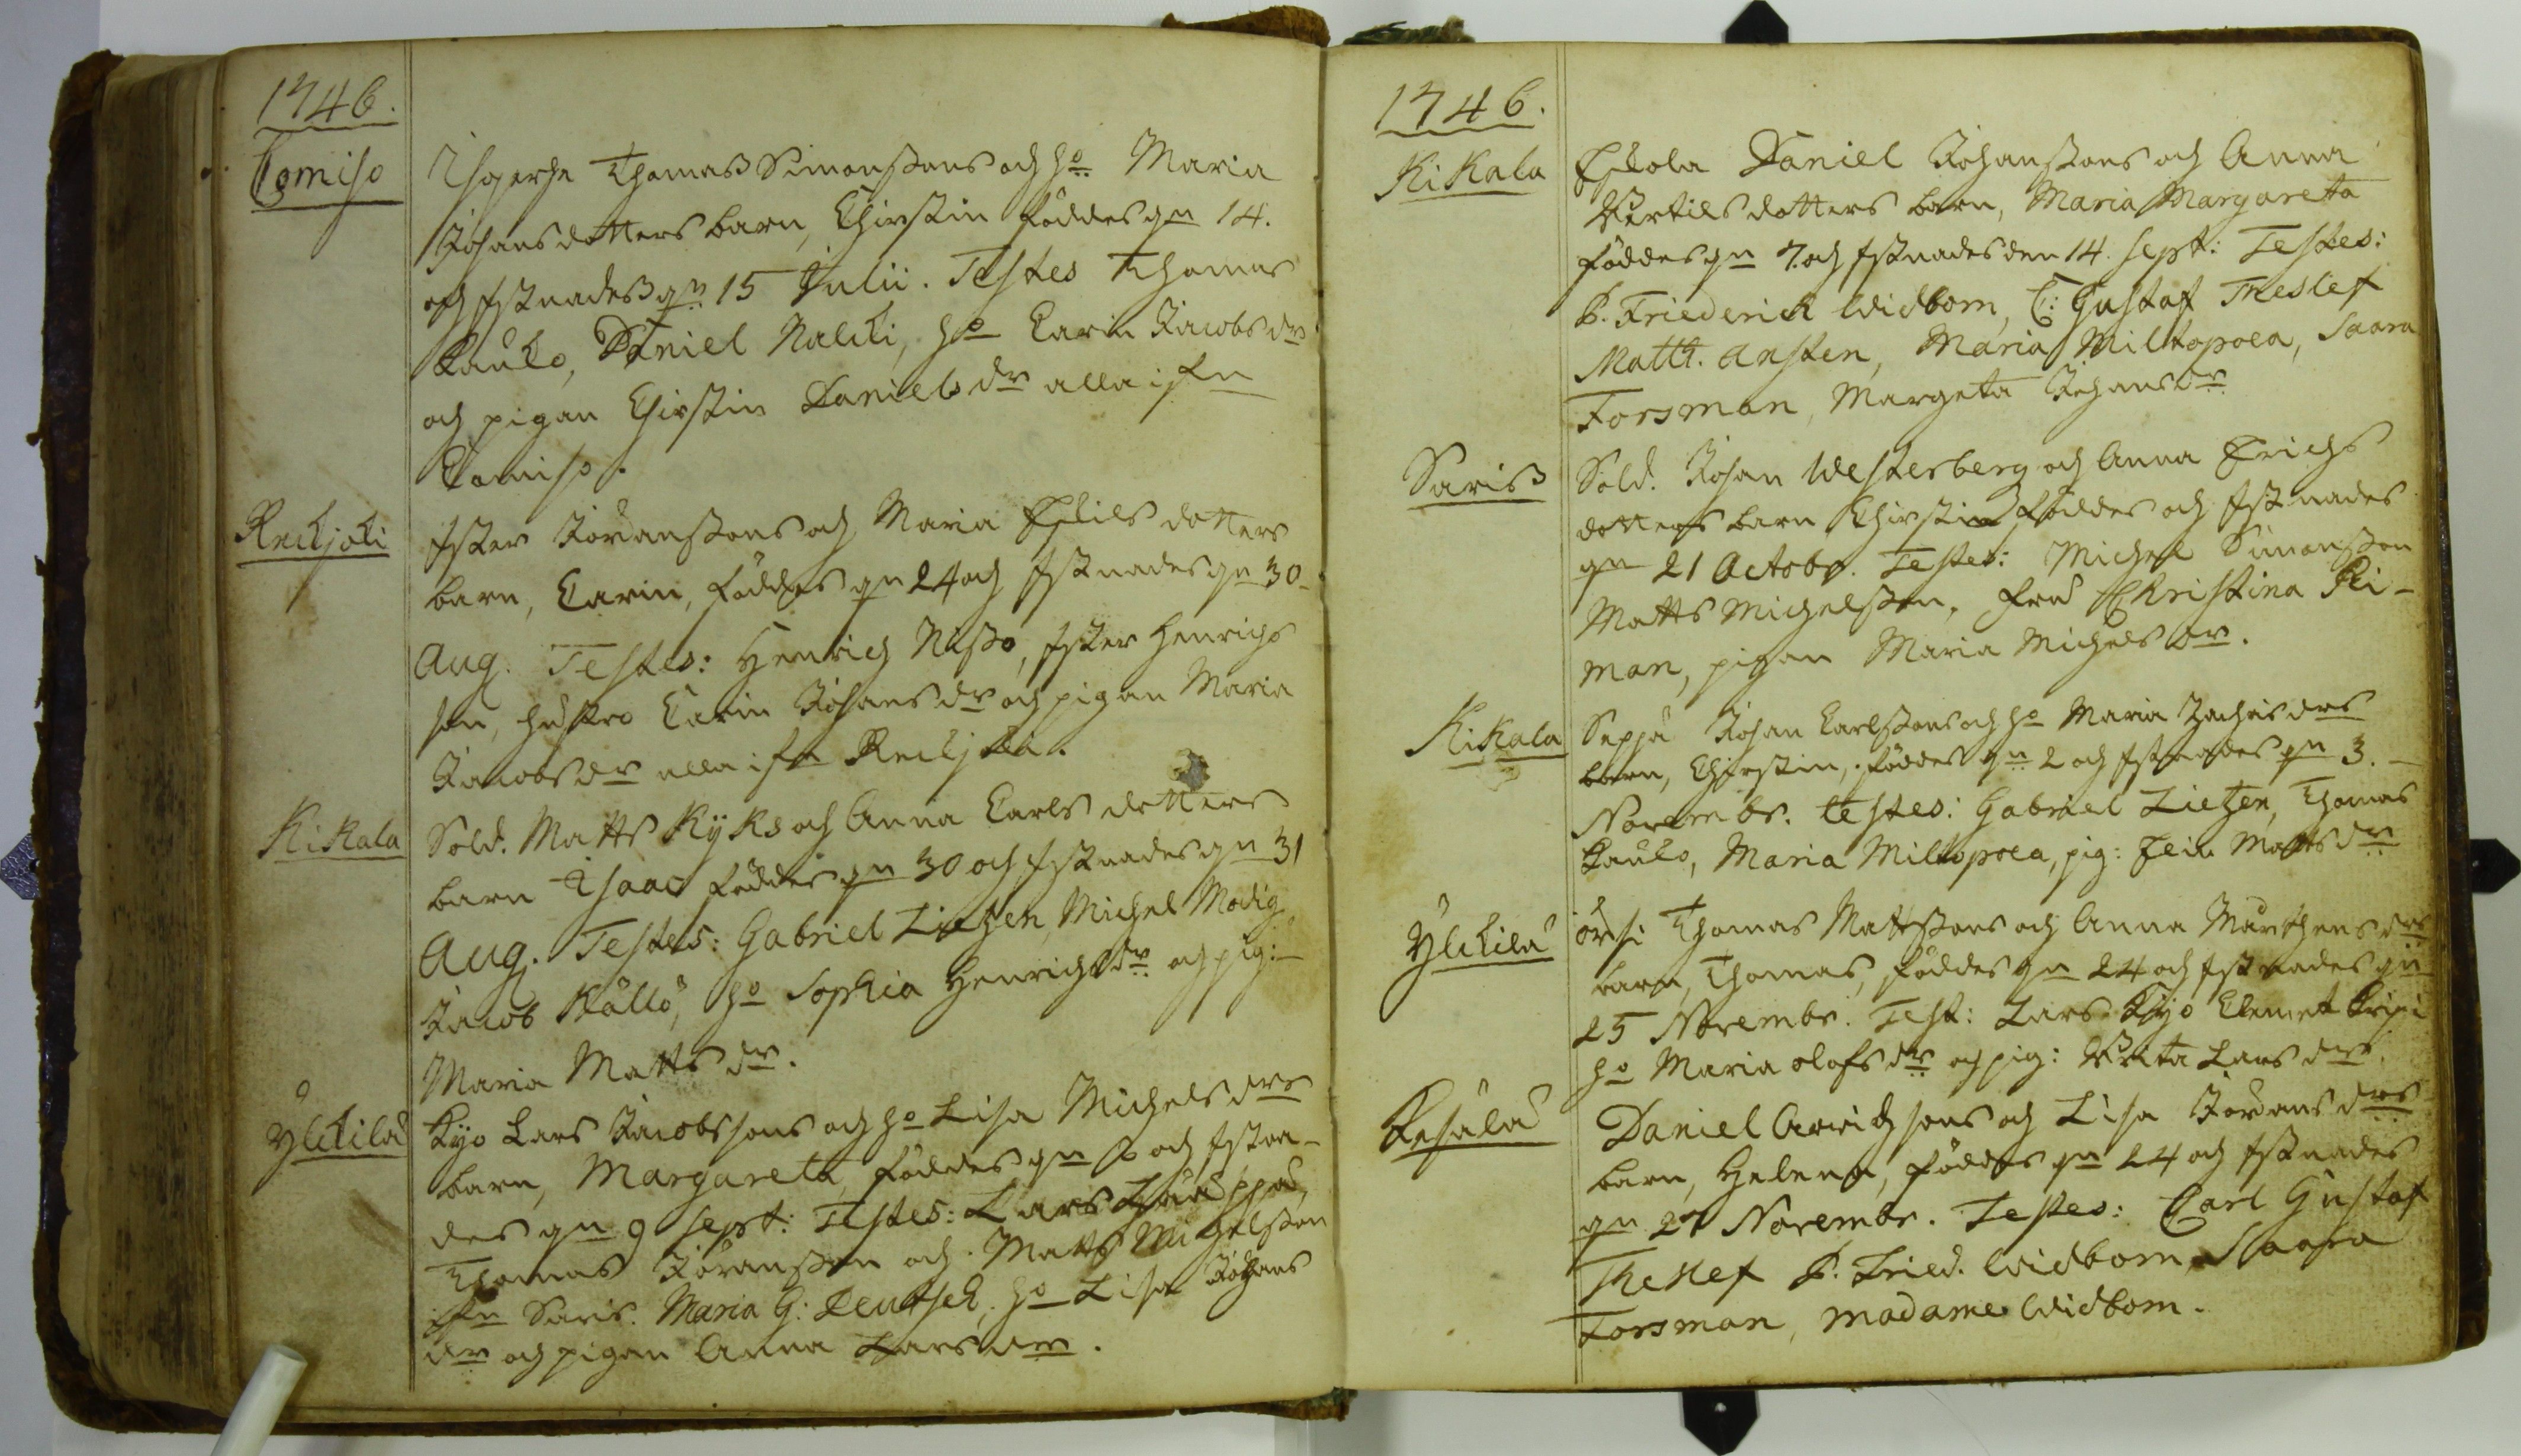 1746.
Comiso
Thomas Simonssons och ho Maria
Johansdotters barn, Chirstin föddes gn 14.
och Xstnades gn 15 Julii. Testes Thomas
Pauko, Daniel Nalcki, ho Carin Jacobs dr
och pigan Chirstin Daniels dr alla ifn
Comiso.
Reckjoki
Ester Jöranssons och Maria Eskilsdotters
barn, Carin, föddes gn 24 och Xstnades gn 30
Aug. Testes: Henrich Nisso, Henrichs
son, hustro Carin Johans dr och pigan Maria
Jacobs dr alla ifn Reckjoki.
Kikala
Sold. Matts Kyks och Anna Carls dotters
barn Isaac föddes gn 30 och Xstnades gn 31
Aug. Testes: Gabriel Lietzen, Michel Modig
Jacob Källö, ho Sophia Henrichs dr och pig:
Maria Matts dr.
Ylikilä
Kyö Lars Jacobssons och ho Lisa Michels drs
barn, Margareta föddes gn 8 och Xstna-
des gn 9 Sept: Testes: Lars
Thomas Jöransson och Matts Michelsson
ifn Saris. Maria G: Deutsch, ho Lisa Johans
dr och pigan Anna Lars dr.
1746.
Kikala
Eskola Daniel Johanssons och Anna
Bertils dotters barn, Maria Margareta
föddes gn 7. och Xstnades den 14. Sept: Testes:
P. Friederick Widbom, C: Gustaf Theslef
Matth. Ansten, Maria Miltopoea, Saara
Forsman, Margeta Johans dr
Sariss
Sold. Johan Westerberg och Anna Erichs
dotters barn Chirstin föddes och Xstnades
gn 21 Octobr. Testes: Michel Simonsson
Matts Michelsson, fru Christina Ri-
man, pigan Maria Michels dr.
Kikala
Seppä Johan Carlssons och ho Maria Zachris drs
barn, Chirstin, föddes gn 2 och Xstnades gn 3.
Novembr. testes: Gabriel Lietzen, Thomas
Pauko, Maria Miltopoea, pig: Elin Matts dr
Ylikilä
Örsi Thomas Mattssons och Anna Mårthens drs
barn, Thomas, föddes gn 24 och Xstnades gn
25 Novembr. Test: Lars Kyö Clemet
ho Maria Olofs dr och pig: Brita Lars dr.
Kesälä
Daniel Arvidssons och Lisa Jörans drs
barn, Helena, föddes gn 24 och Xstnades
gn 27 Novembr. Testes: Carl Gustaf
Theslef P. Fried. Widbom, Saara
Forsman, madame Widbom.